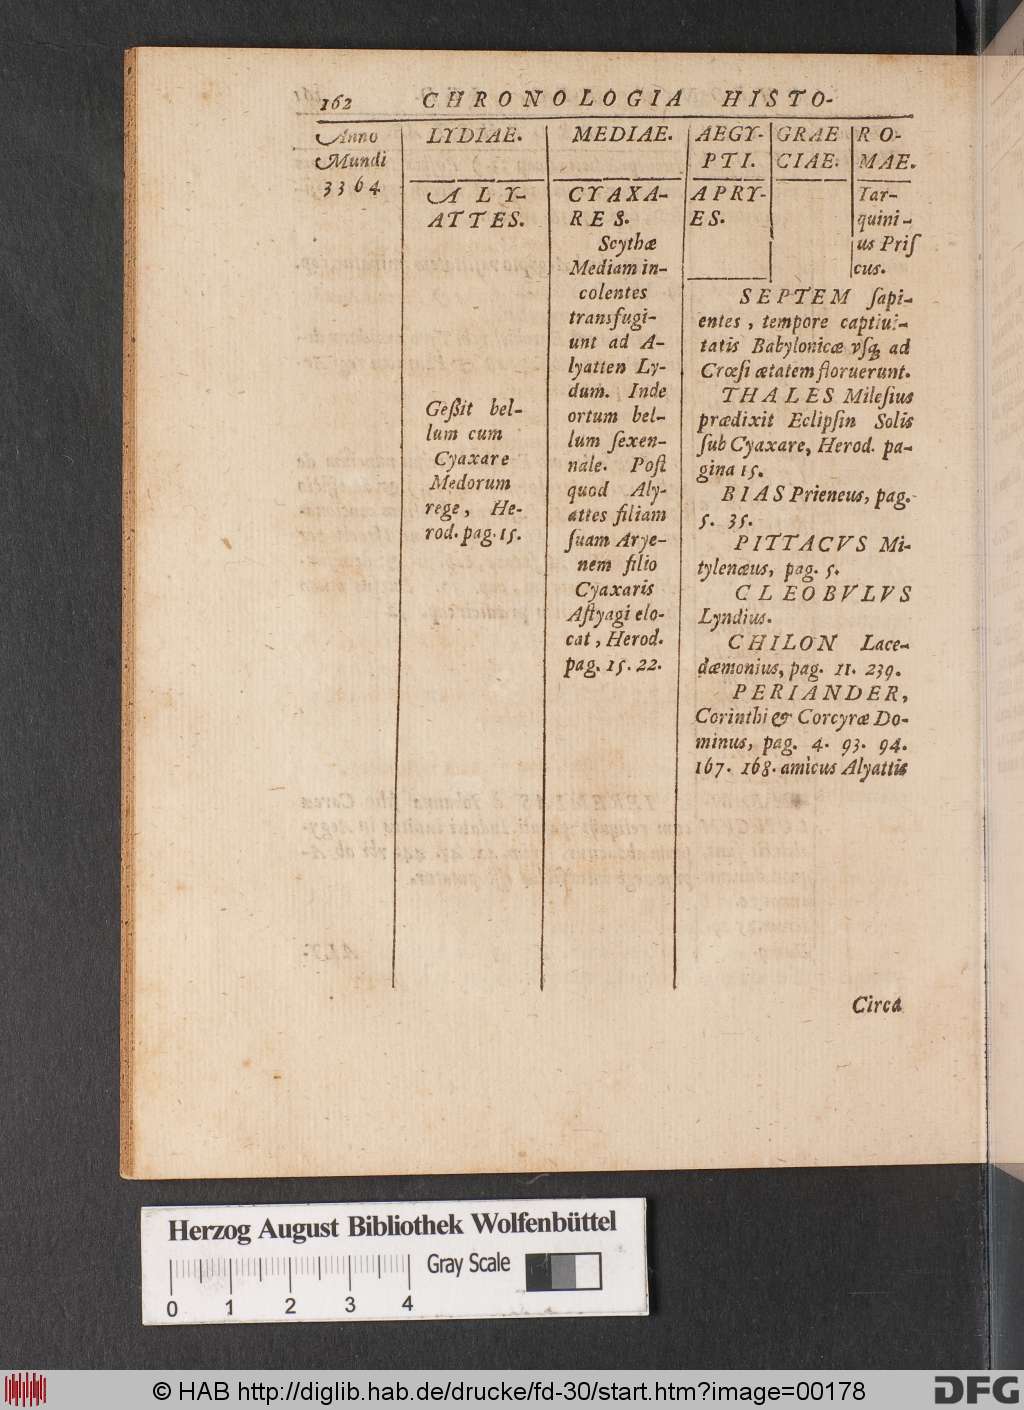 162 CHRONOLOGIA HISTO-
Anno
Mundi
3364
LYDIAE.
ALY-
ATTES.
Geſſit bel-
lum cum
Cyaxare
Medorum
rege, He-
rod. pag. 15.
MEDIAE.
CYAXA-
RES.
Scythæ
Mediam in-
colentes
transfugi-
unt ad A-
lyatten Ly-
dum. Inde
ortum bel-
lum ſexen-
nale. Poſt
quod Aly-
attes filiam
ſuam Arye-
nem filio
Cyaxaris
Aſtyagi elo-
cat, Herod.
pag. 15. 22.
AEGY-
PTI.
APRY-
ES.
GRAE
CIAE.
RO-
MAE.
Tar-
quini-
us Priſ
cus.
SEPTEM ſapi-
entes, tempore captiui-
tatis Babylonicæ vſq; ad
Crœſi ætatem floruerunt.
THALES Mileſius
prædixit Eclipſin Solis
ſub Cyaxare, Herod. pa-
gina 15.
BIAS Prieneus, pag.
5. 35.
PITTACVS Mi-
tylenæus, pag. 5.
CLEOBVLVS
Lyndius.
CHILON Lace-
dæmonius, pag. 11. 239.
PERIANDER,
Corinthi & Corcyræ Do-
minus, pag. 4. 93. 94.
167. 168. amicus Alyattis
Circa
Herzog August Bibliothek Wolfenbüttel
Gray Scale
0 1 2 3 4
© HAB http://diglib.hab.de/drucke/fd-30/start.htm?image=00178
DFG